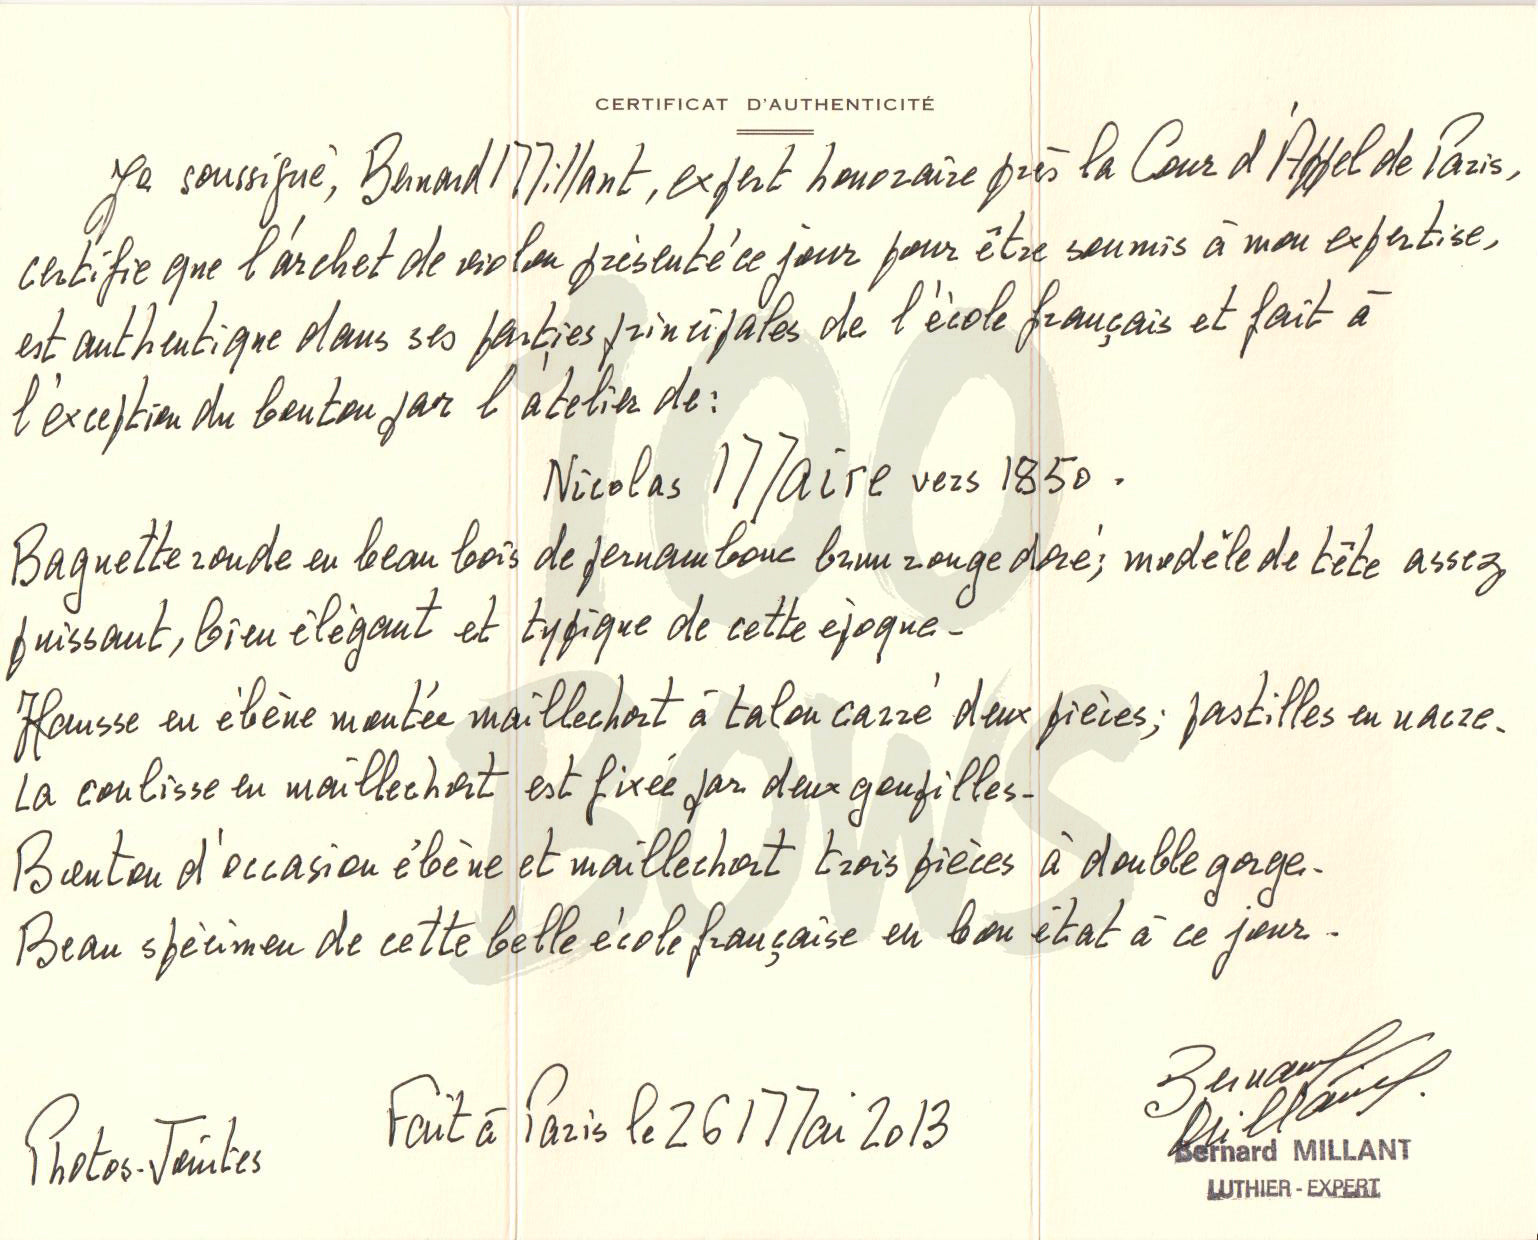 CERTIFICAT D'AUTHENTICITÉ
Je soussigné, Bernard Millant, expert honoraire près la Cour d'Appel de Paris,
certifie que l'archet de violon présenté ce jour pour être soumis à mon expertise,
est authentique dans ses parties principales de l'école français et fait à
l'exception du bouton par l'atelier de:
Nicolas Maire vers 1850.
Baguette ronde en beau bois de pernambouc brun rouge doré; modèle de tête assez
puissant, bien élégant et typique de cette époque-
Hausse en ébène montée maillechort à talon carré deux pièces; pastilles en nacre.
La coulisse en maillechort est fixée par deux goupilles-
Bouton d'occasion ébène et maillechort trois pièces à double gorge.
Beau spécimen de cette belle école française en bon état à ce jour.
100
BOWS
Photos-Jointes
Fait à Paris le 26 Mai 2013
Bernard Millant
Bernard MILLANT
LUTHIER - EXPERT